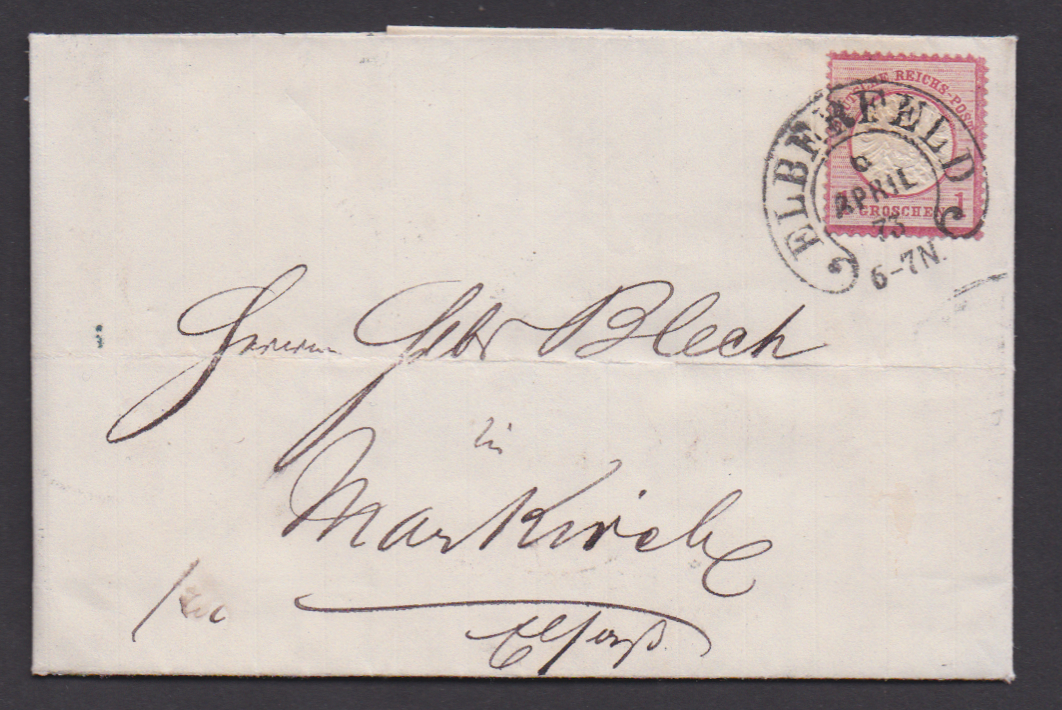 DEUTSCHE REICHS-POST
1
GROSCHEN
ELBERFELD
6
APRIL
73
6-7N.
Herren Gebr Blech
in
Markirch
Elsaß.